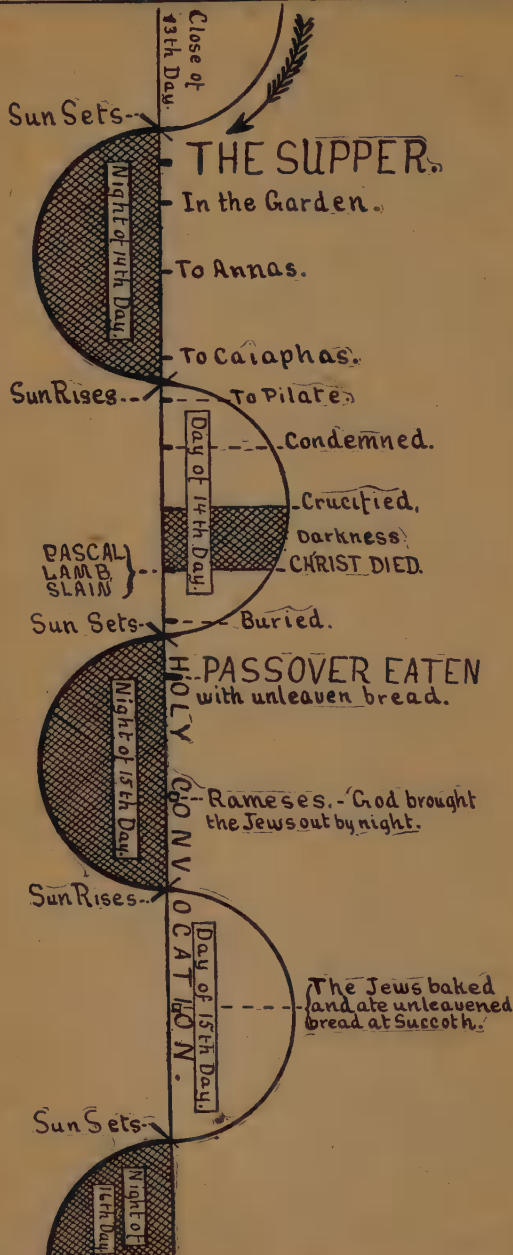 Close of
13th Day.
Sun Sets
THE SUPPER.
Night of 14th Day.
In the Garden.
To Annas.
To Caiaphas.
Sun Rises
To Pilate.
Condemned.
Day of 14th Day.
Crucified,
Darkness
PASCAL
LAMB
SLAIN
CHRIST DIED.
Buried.
Sun Sets
HOLY CONVOCATION.
PASSOVER EATEN
with unleaven bread.
Night of 15th Day.
Rameses.-God brought
the Jews out by night.
Sun Rises
Day of 15th Day.
The Jews baked
and ate unleavened
bread at Succoth.
Sun Sets
Night of
16th Day